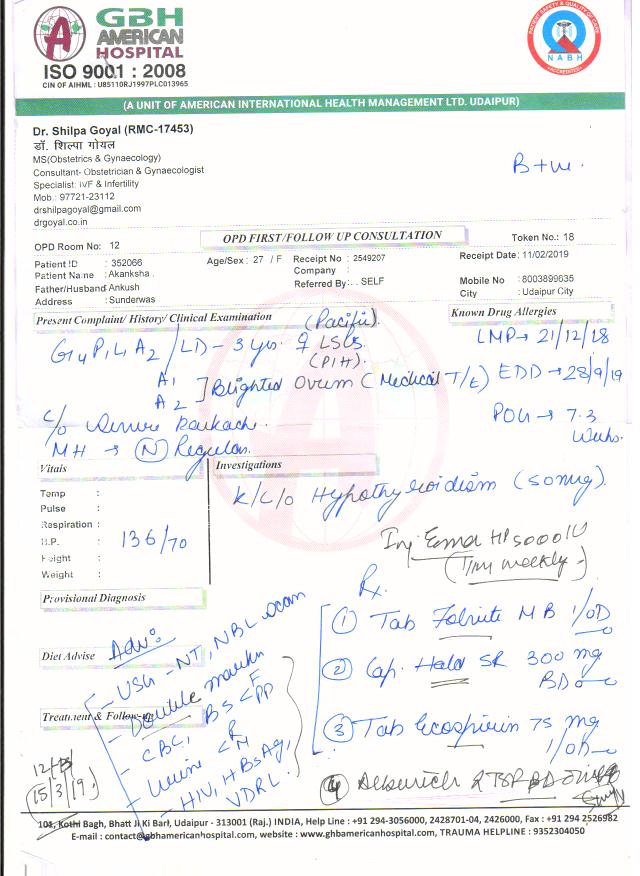 GBH
AMERICAN
HOSPITAL
ISO 9001 : 2008
CIN OF AIHML : U85110RJ1997PLC013965
PATIENT SAFETY & QUALITY OF CARE
NABH
ACCREDITED
(A UNIT OF AMERICAN INTERNATIONAL HEALTH MANAGEMENT LTD. UDAIPUR)
Dr. Shilpa Goyal (RMC-17453)
डॉ. शिल्पा गोयल
MS(Obstetrics & Gynaecology)
Consultant- Obstetrician & Gynaecologist
Specialist: IVF & Infertility
Mob.: 97721-23112
drshilpagoyal@gmail.com
drgoyal.co.in
B+ve.
OPD FIRST/FOLLOW UP CONSULTATION
OPD Room No: 12
Token No.: 18
Patient ID : 352066 Age/Sex: 27 / F Receipt No : 2549207 Receipt Date: 11/02/2019
Patient Name : Akanksha . Company :
Father/Husband: Ankush Referred By: . . SELF Mobile No : 8003899635
Address : Sunderwas City : Udaipur City
Present Complaint/ History/ Clinical Examination
Known Drug Allergies
(Pacific).
G4P1L1A2 / LD - 3 yrs. LSCS
(PIH).
A1
A2 ] Blighted Ovum (Medical T/t)
LMP → 21/12/18
EDD → 28/9/19
POG → 7.3 Weeks.
c/o Backache.
MH → (N) Regular.
Vitals
Investigations
Temp :
Pulse :
Respiration :
B.P. : 136/70
Height :
Weight :
K/c/o Hypothyroidism (50mcg).
Inj. Ema HP 5000 IU
(I/M weekly)
Provisional Diagnosis
Rx.
① Tab Folvite MB 1/OD
② Cap. Hald SR 300 mg BD
③ Tab Ecosprin 75 mg 1/OD
④ 2 TSP BD
Diet Advise
Adv:
- USG - NT, NBL scan
- Double marker
- CBC, BS < F PP
- Urine < R M
- HIV, HBsAg, VDRL.
Treatment & Follow-up
15/3/19.
101, Kothi Bagh, Bhatt Ji Ki Bari, Udaipur - 313001 (Raj.) INDIA, Help Line : +91 294-3056000, 2428701-04, 2426000, Fax : +91 294 2526982
E-mail : contact@gbhamericanhospital.com, website : www.gbhamericanhospital.com, TRAUMA HELPLINE : 9352304050